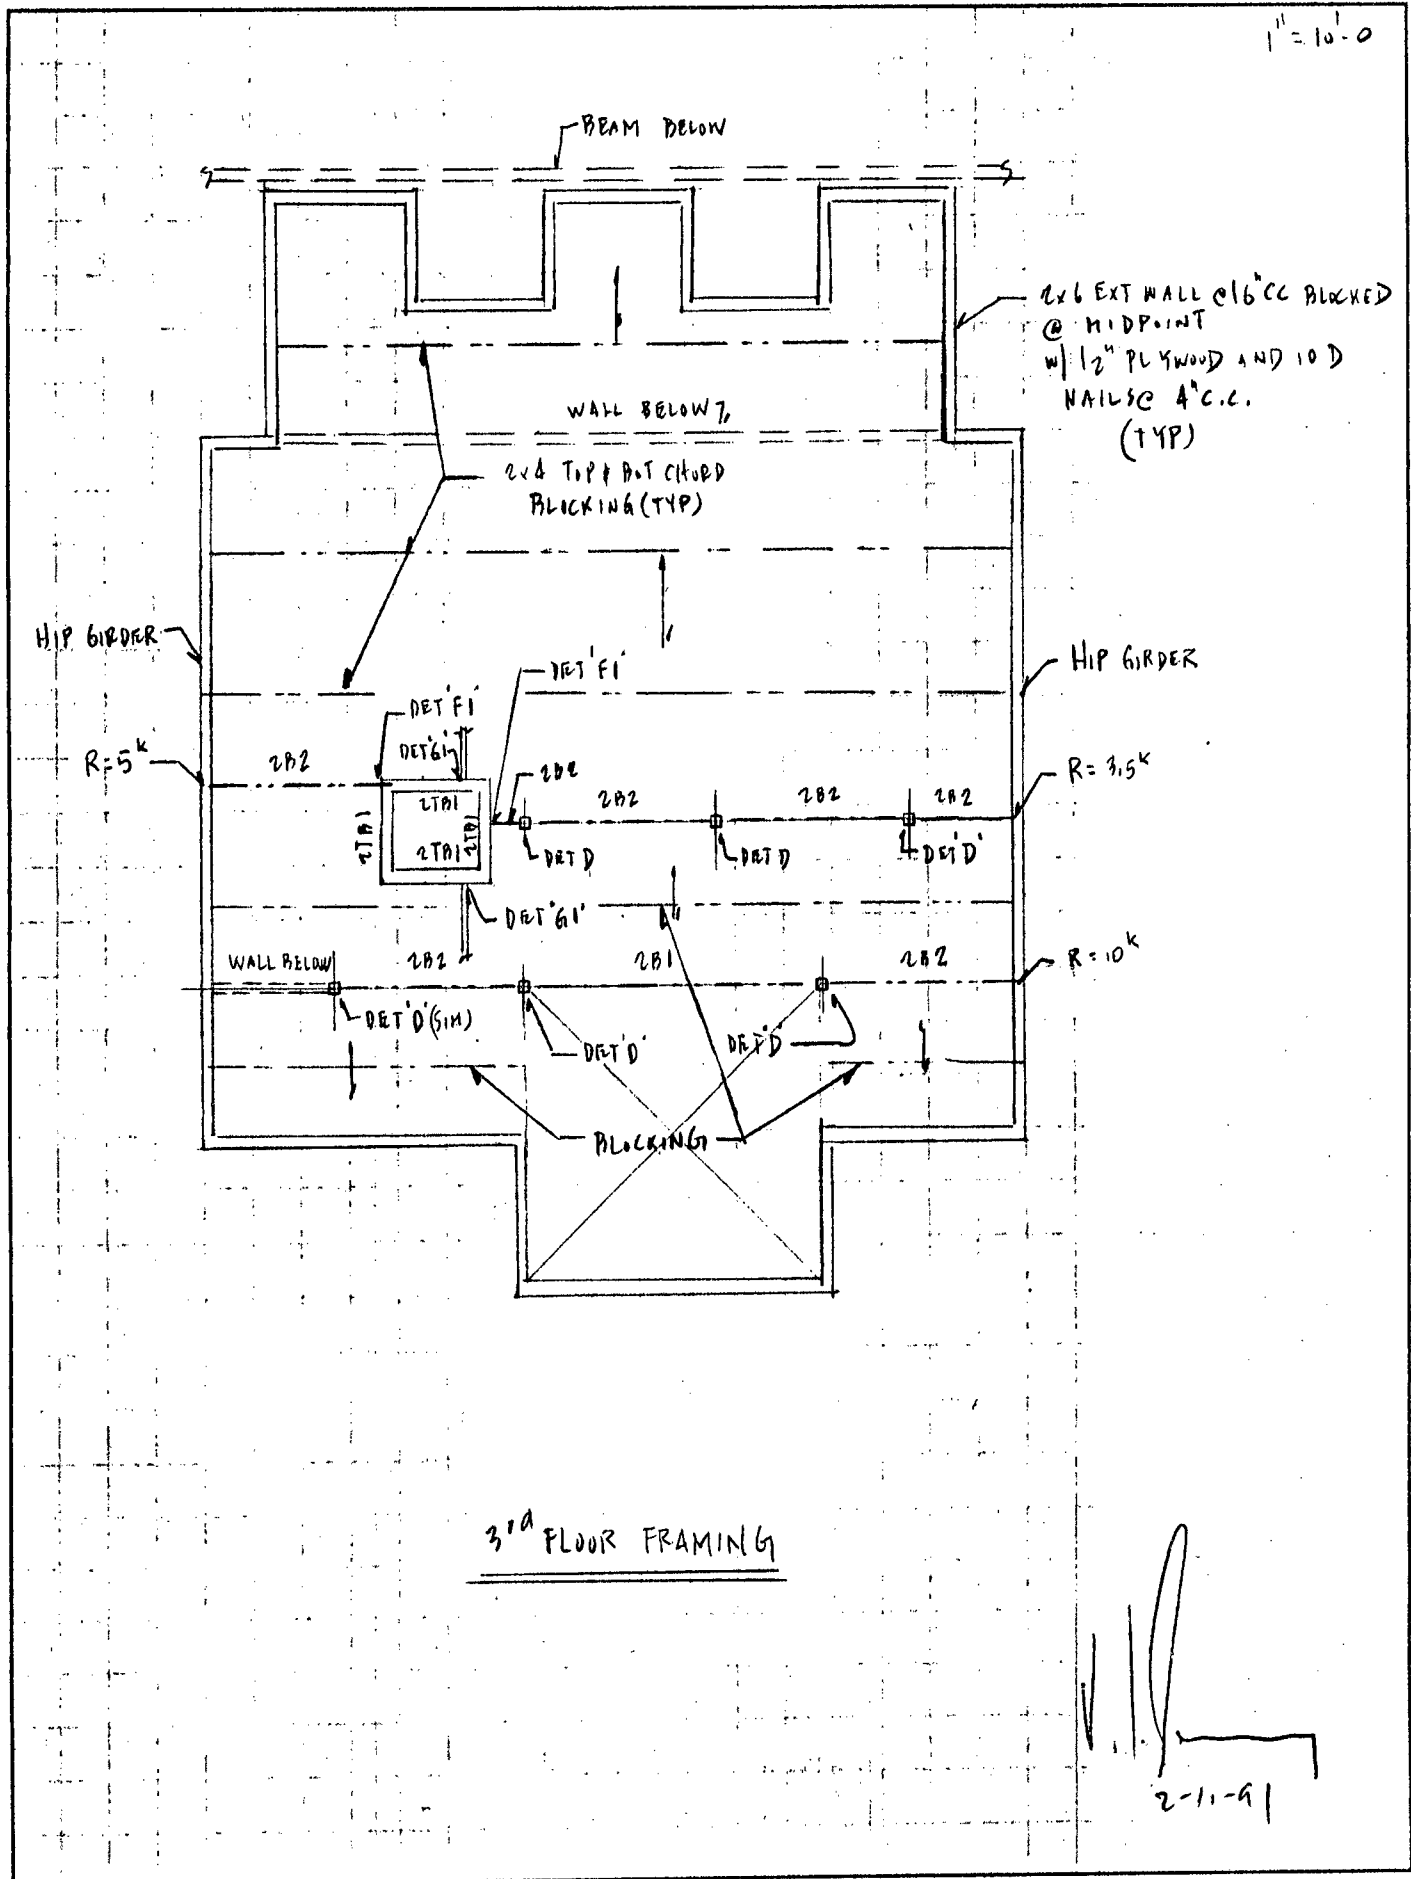 1" = 10'-0
BEAM BELOW
2x6 EXT WALL @16"CC BLOCKED
@ MIDPOINT
w/ 1/2" PLYWOOD AND 10D
NAILS@ 4"C.C.
(TYP)
WALL BELOW
2x4 TOP & BOT CHORD
BLOCKING (TYP)
HIP GIRDER
HIP GIRDER
DET'F1'
DET'F1'
DET'G1'
R=5k
2B2
2B2
2B2
2B2
2B2
R=3.5k
2TB1
2TB1
2TB1
2TB1
DET D
DET D
DET'D'
DET'G1'
WALL BELOW
2B2
2B1
2B2
R=10k
DET'D'(SIM)
DET'D'
DET'D'
BLOCKING
3rd FLOOR FRAMING
2-11-91